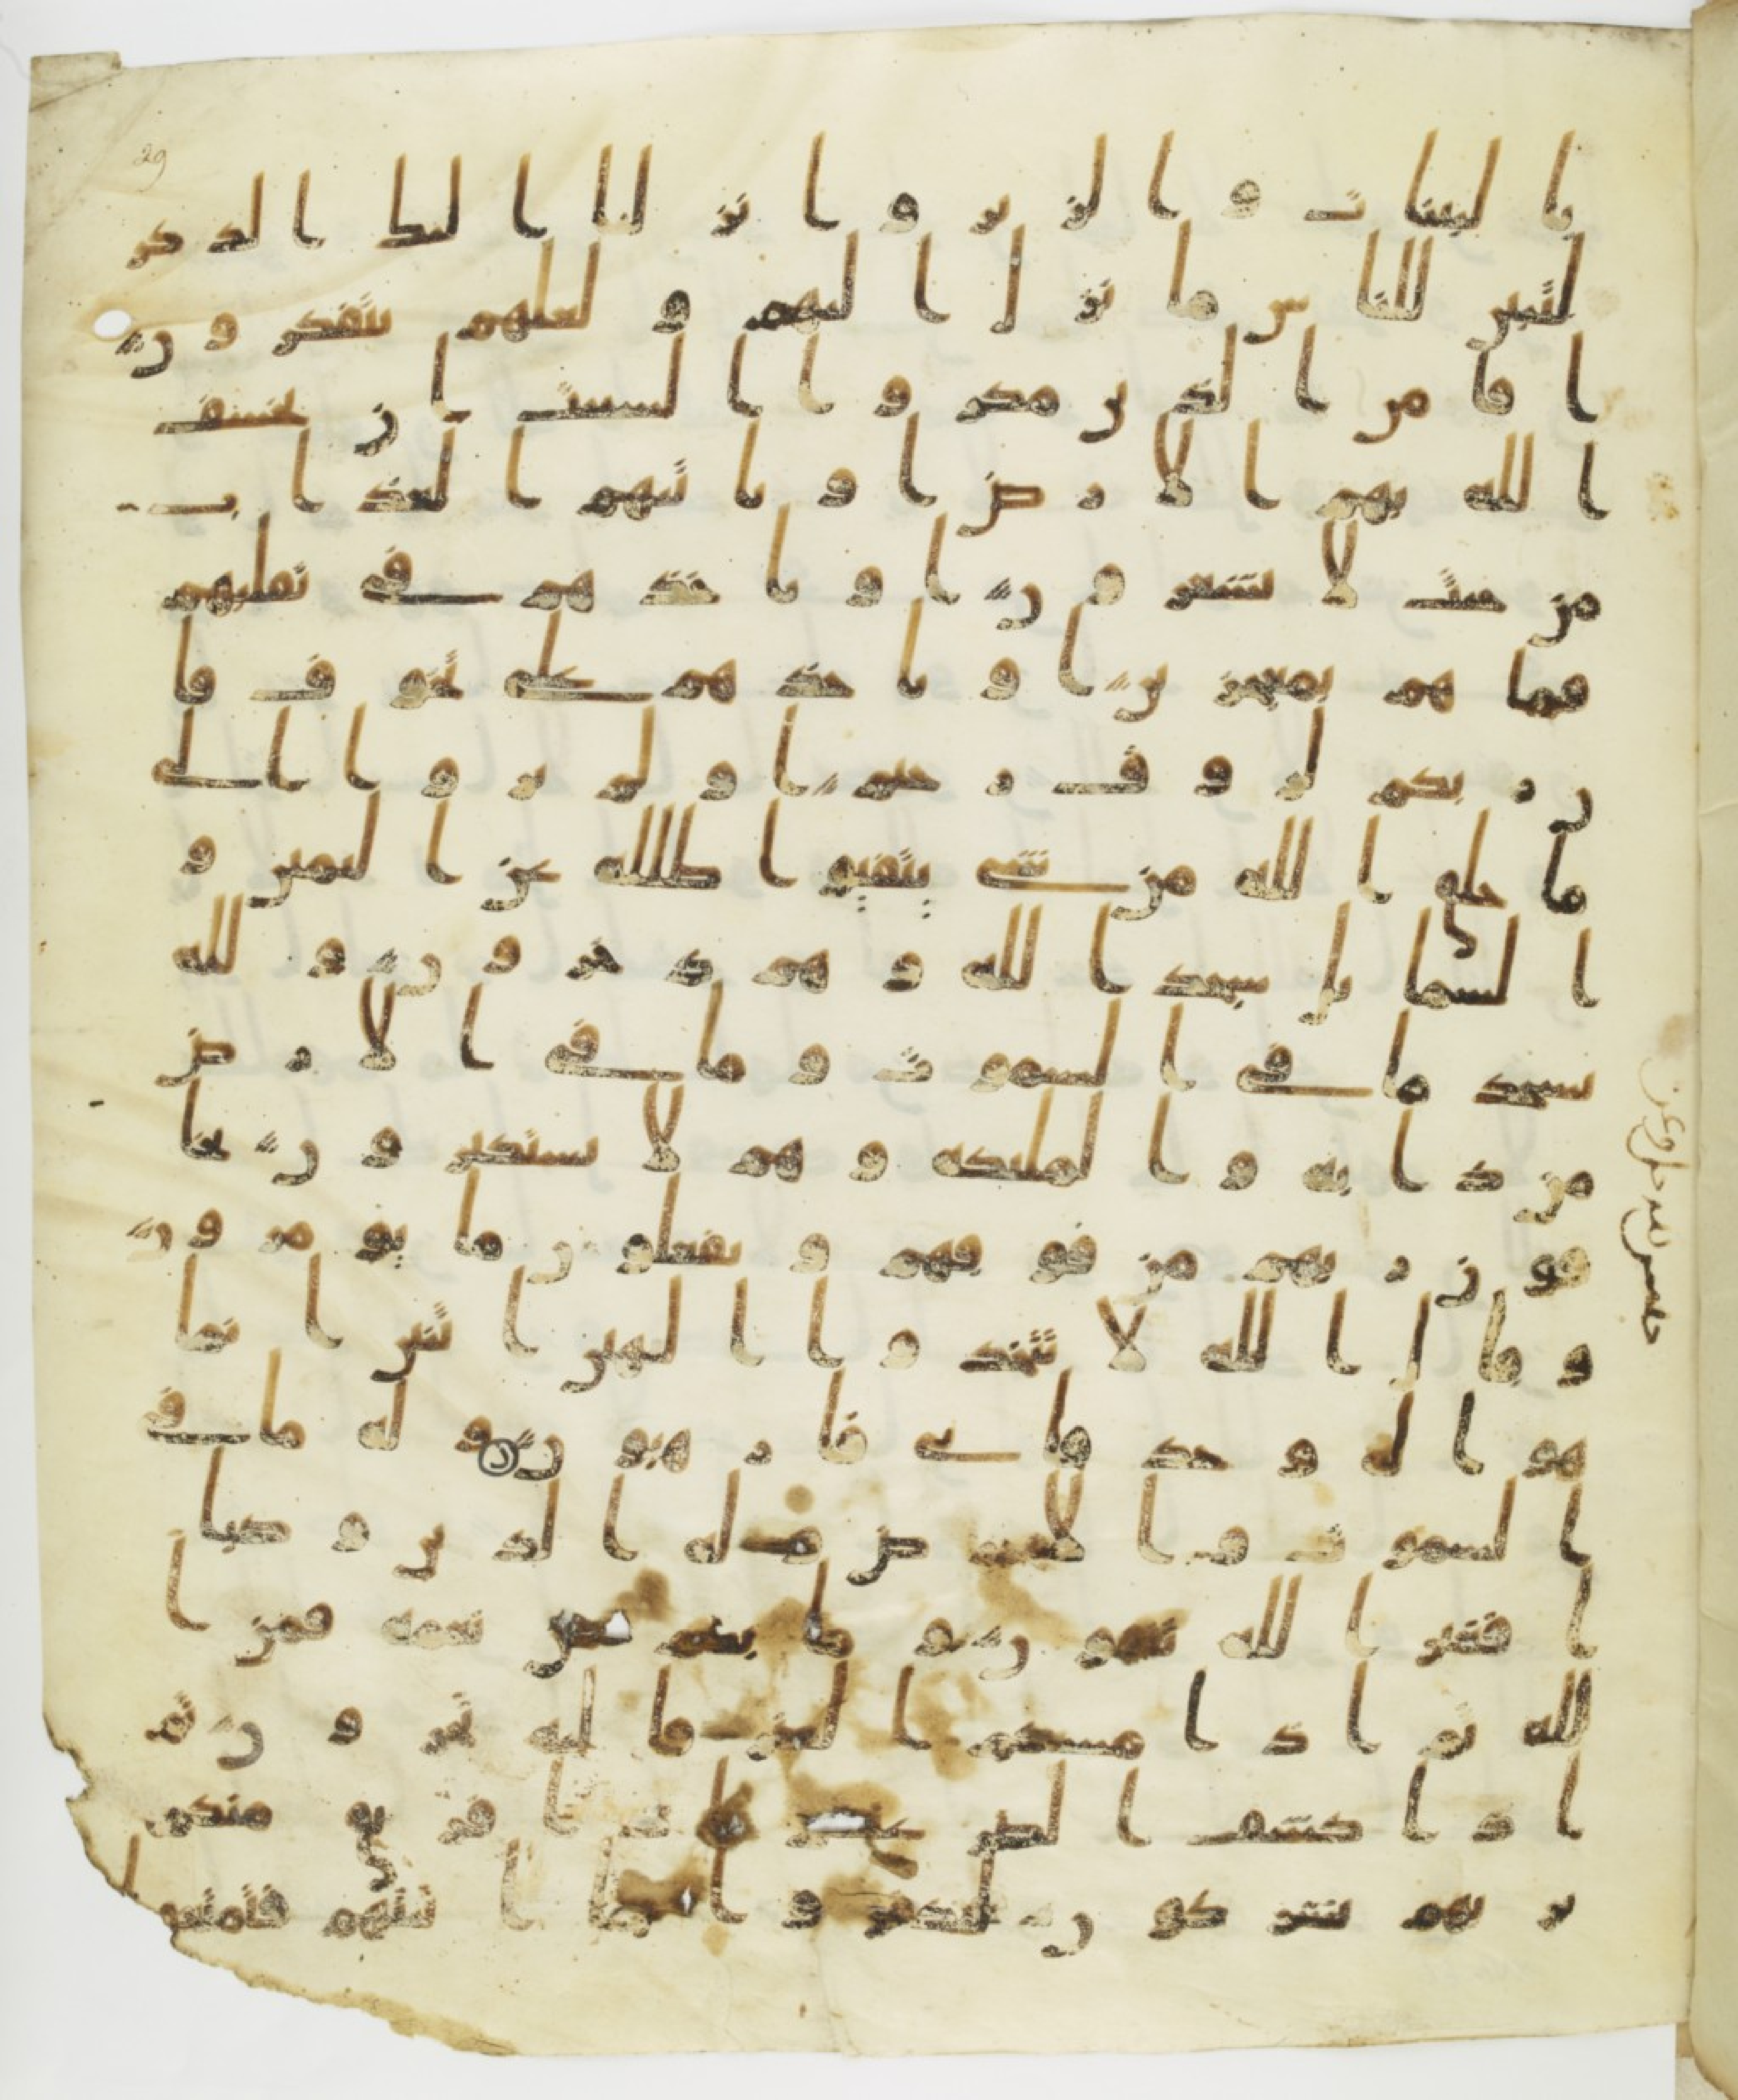 29
بالبينات والزبر وانزلنا اليك الذكر
لتبين للناس ما نزل اليهم ولعلهم يتفكرون
افامن الذين مكروا السيت ان يخسف
الله بهم الارض او ياتيهم العذاب
من حيث لا يشعرون او ياخذهم في تقلبهم
فما هم بمعجزين او ياخذهم على تخوف فا
ن ربكم لروف رحيم او لم يروا الى
ما خلق الله من شي يتفيوا ظلله عن اليمين و
الشمايل سجدا لله وهم دخرون ولله
يسجد ما في السموت وما في الارض
من دابه والمليكه وهم لا يستكبرون يخا
فون ربهم من فوقهم ويفعلون ما يومرون
وقال الله لا تتخذوا الهين اثنين انما
هو اله وحد فايي فارهبون وله ما في
السموت والارض وله الدين وصبا
افغير الله تتقون وما بكم من نعمه فمن ا
لله ثم اذا مسكم الضر فاليه تجرون ثم
اذا كشف الضر عنكم اذا فريق منكم
بربهم يشركون ليكفروا بما اتينهم فتمتعوا
حبس لله جل وعز